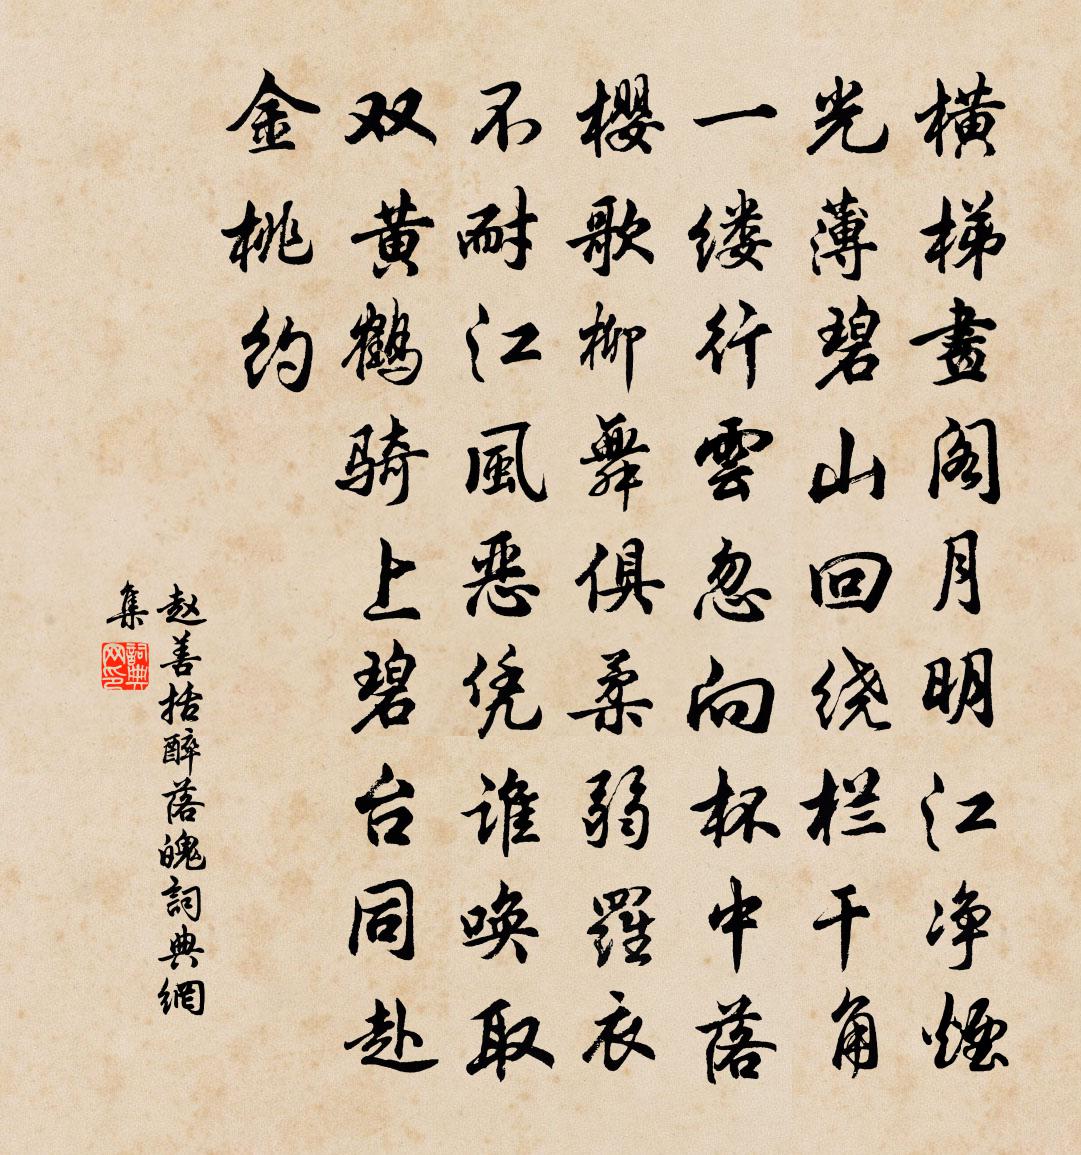 橫梯畫阁月明江净煙
光薄碧山回绕栏干角
一缕行雲忽向杯中落
櫻歌柳舞俱柔弱羅衣
不耐江風恶凭谁唤取
双黄鹤骑上碧台同赴
金桃约
赵善括醉落魄詞典網
集
詞典
网印